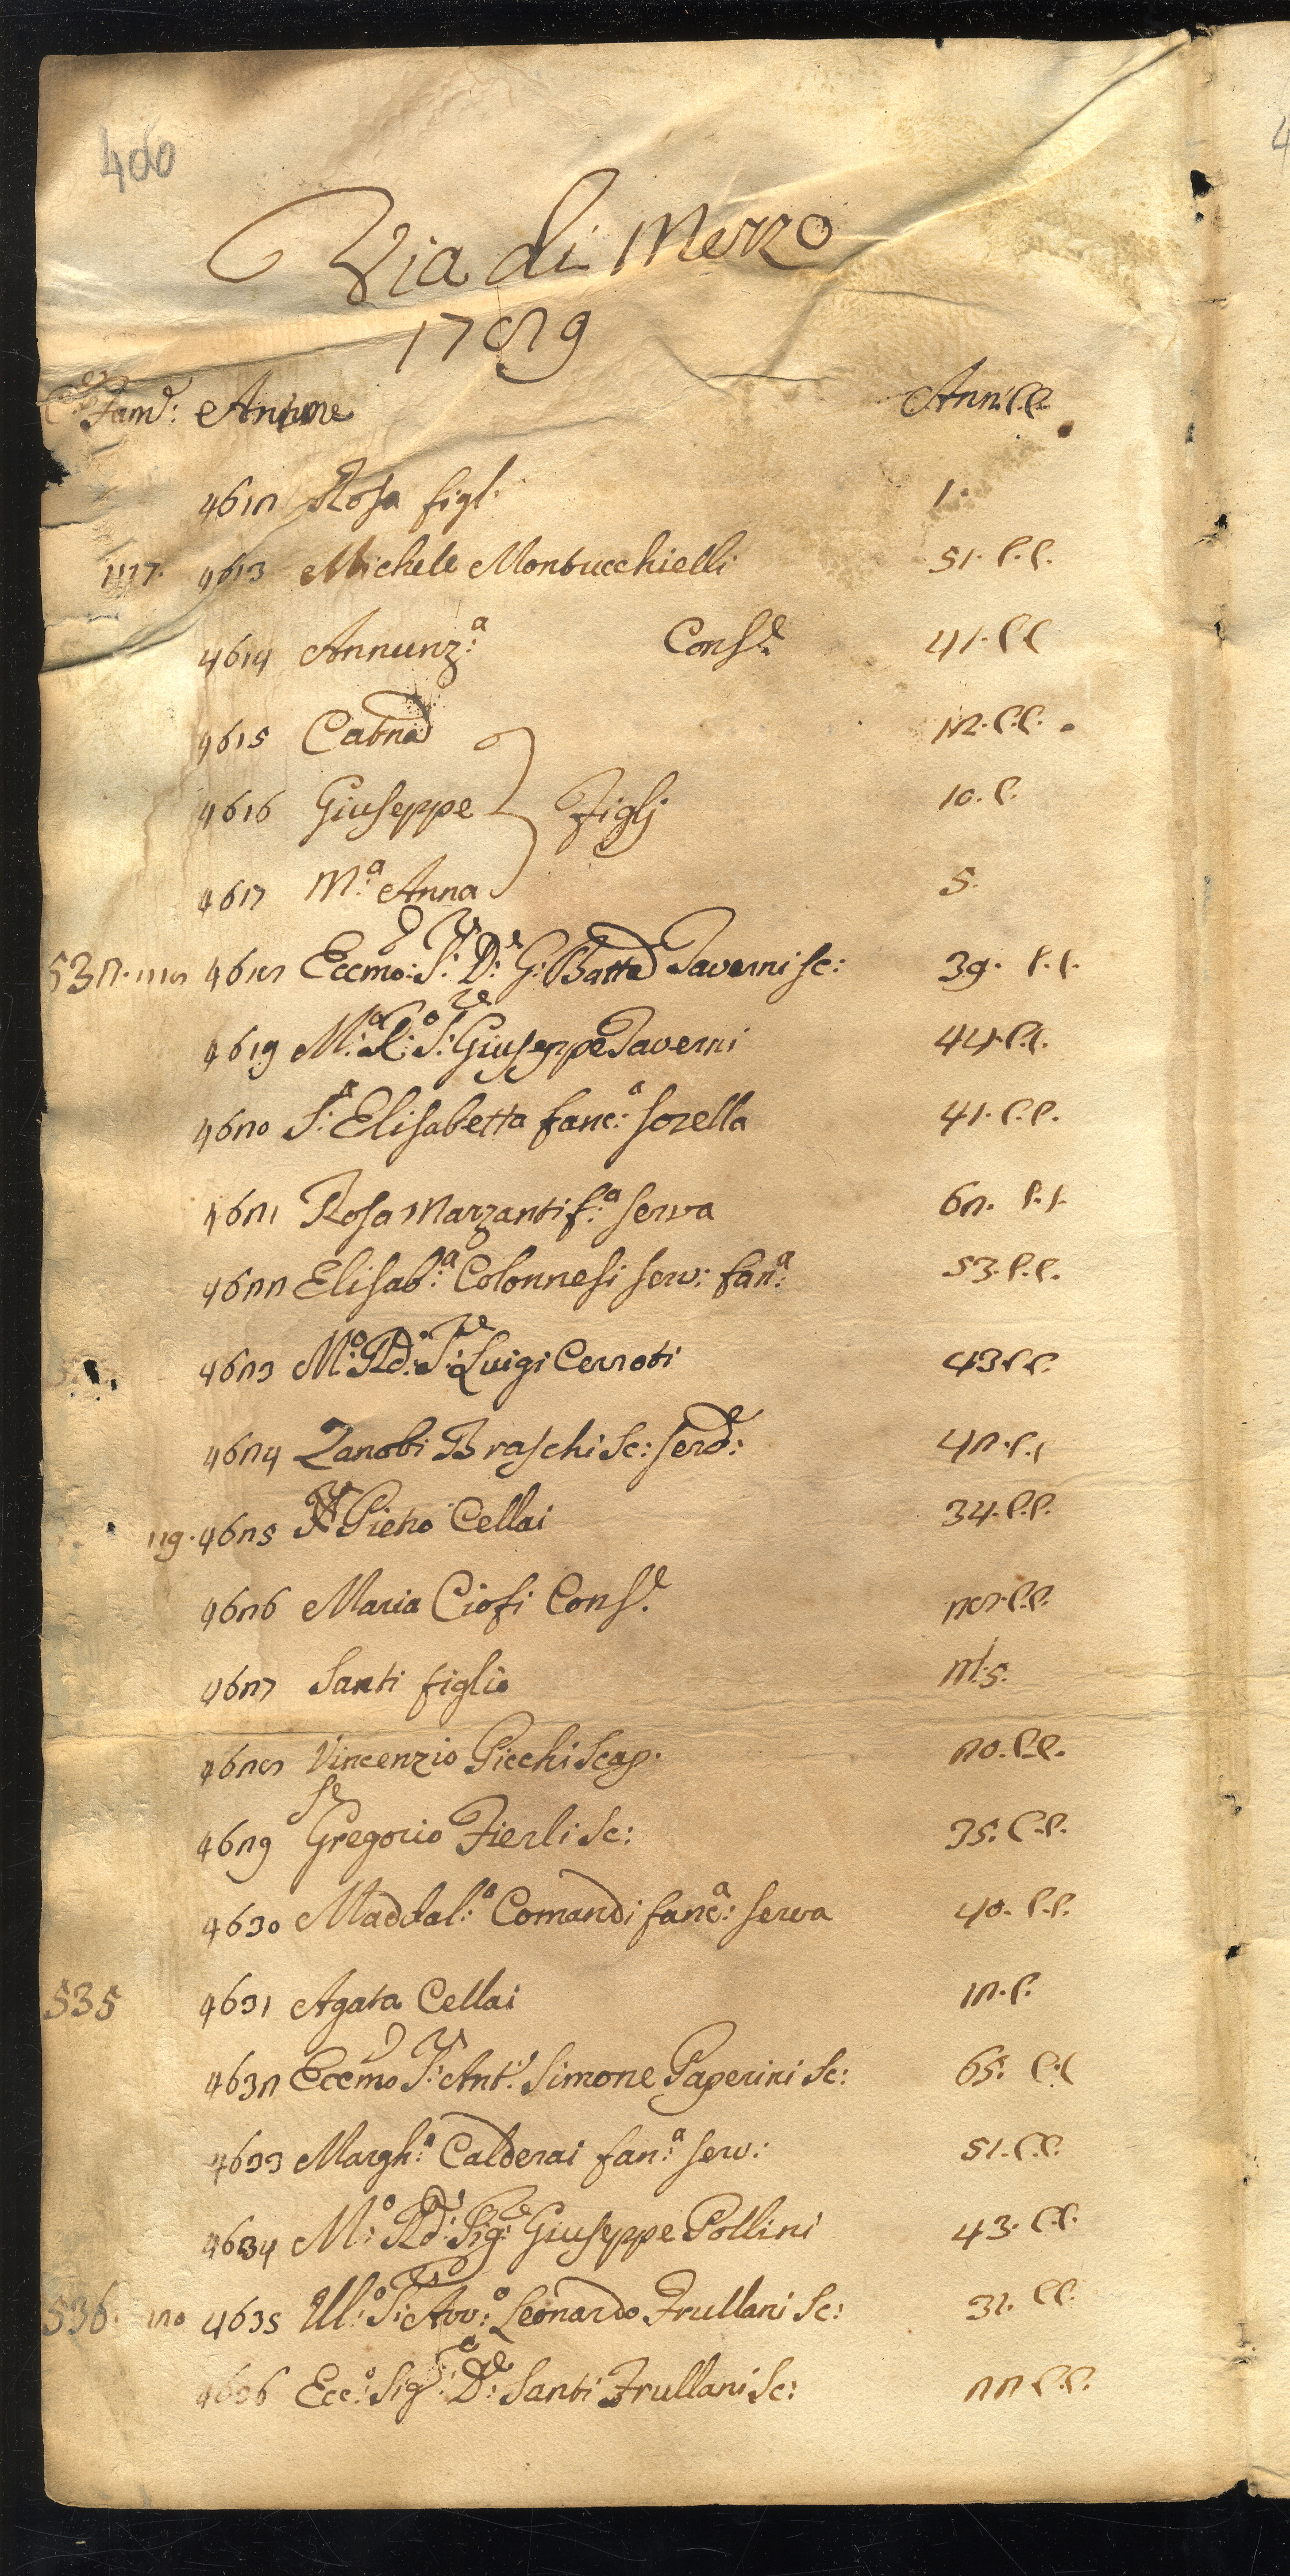 400
Via di Mezzo
1789
Case Fam.e: Anime Anni C.C.
4612 Rosa figl. 1.
117. 4613 Michele Montucchielli 51. C.C.
4614 Annunz.a Cons.e 41. C.C
4615 Catna 12. C.C.
4616 Giuseppe 10. C.
Figlj
4617 M.a Anna 5.
532. 118 4618 Eccmo: S.r D.r G: Batta Taverni sc: 39. C.C.
4619 M.o R.o S.re Giuseppe Taverni 44. C.C.
4620 S.a Elisabetta fanc.a sorella 41. C.C.
4621 Rosa Marzanti f.a serva 62. C.C.
4622 Elisab.a Colonnesi serv: fan.a 53. C.C.
4623 M.o Rd.o S.re Luigi Cerroti 43 C.C.
4624 Zanobi Braschi sc: serv.e: 42. C.C
119. 4625 Pietro Cellai 34. C.C.
4626 Maria Ciofi Cons.e 28. C.C.
4627 Santi figlio M. 5.
4628 Vincenzio Picchi scap. 20. C.C.
4629 Gregorio Fierli sc: 35. C.C.
4630 Maddal.a Comandi fanc.a: serva 40. C.C.
535 4631 Agata Cellai 12. C.
4632 Eccmo S.r Ant.o Simone Paperini sc: 65. C.C
4633 Margh.a Calderai fan.a serv.: 51. C.C.
4634 M.o Rd.o Sig.re Giuseppe Pollini 43. C.C.
536. 120 4635 Ill.o S.r Avv.o Leonardo Frullani sc: 32. C.C.
4636 Ecc.o Sig.r D.re Santi Frullani sc: 22 C.C.